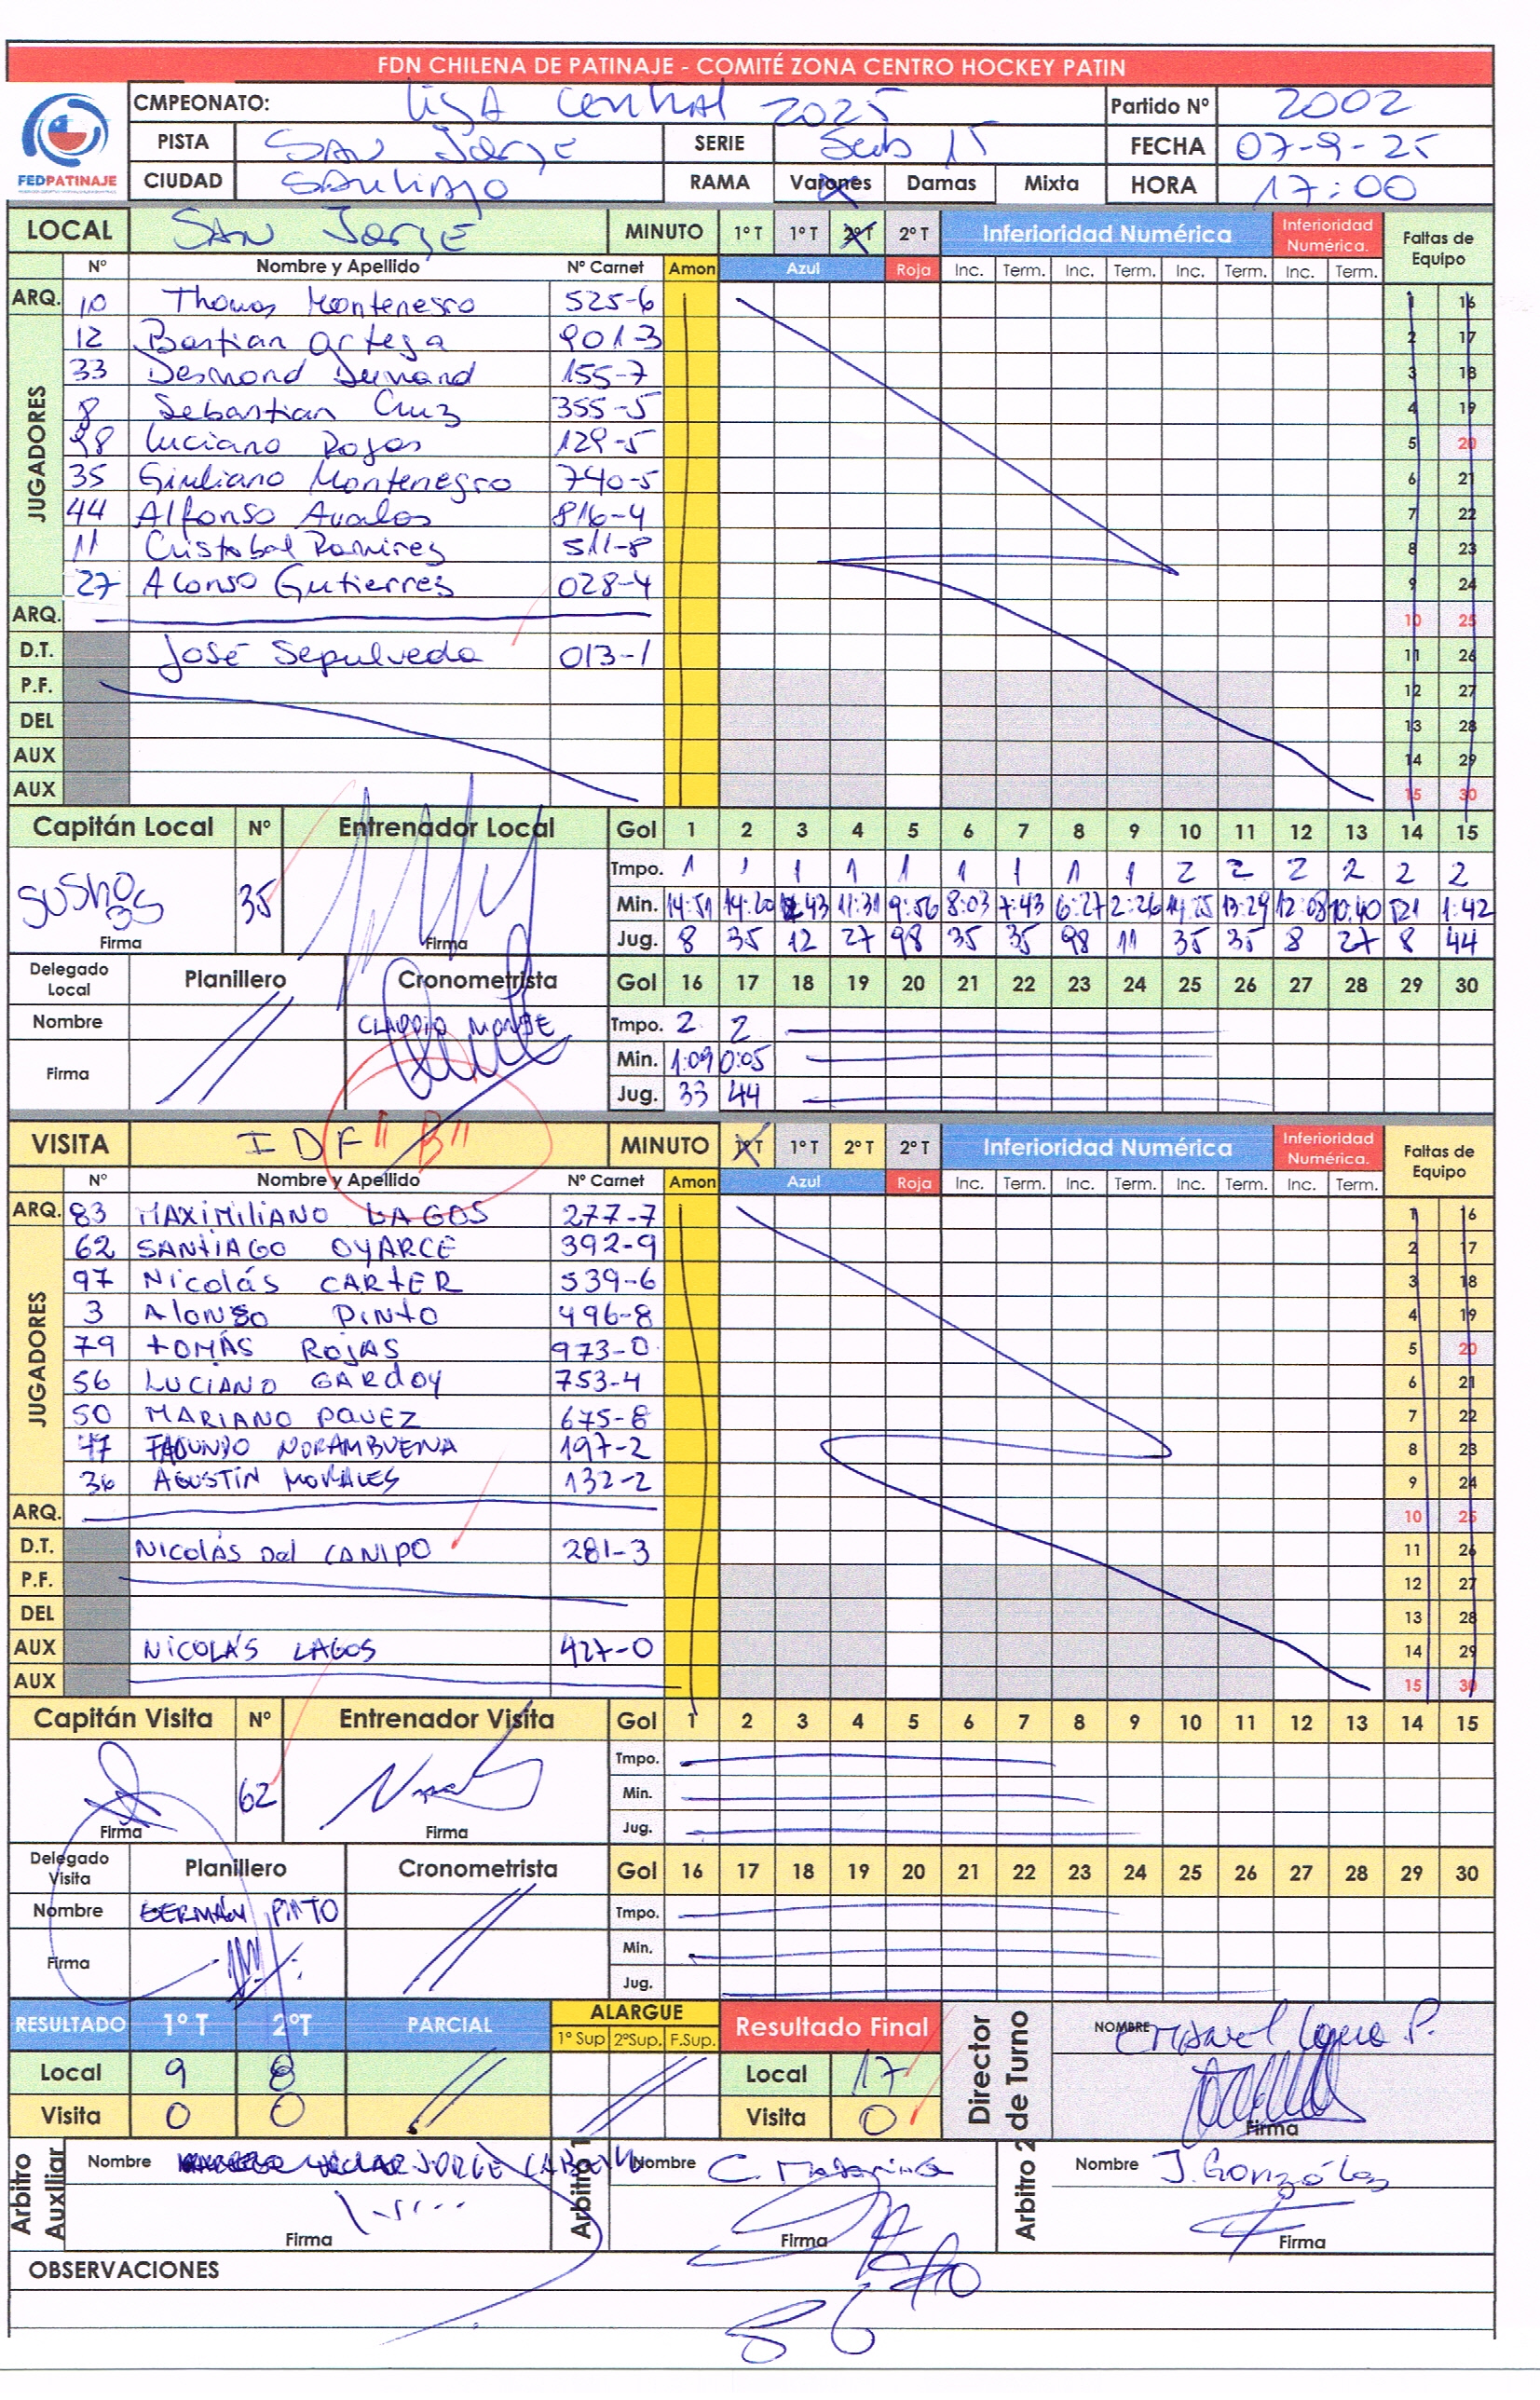 FDN CHILENA DE PATINAJE - COMITÉ ZONA CENTRO HOCKEY PATIN
FEDPATINAJE
CMPEONATO: Liga Central 2025 Partido Nº 2002
PISTA San Jorge SERIE Sub 15 FECHA 07-9-25
CIUDAD Santiago RAMA Varones Damas Mixta HORA 17:00
LOCAL San Jorge MINUTO 1º T 1º T 2º T 2º T Inferioridad Numérica Inferioridad Numérica. Faltas de Equipo
Nº Nombre y Apellido Nº Carnet Amon Azul Roja Inc. Term. Inc. Term. Inc. Term. Inc. Term.
JUGADORES
ARQ. 10 Thomas Montenegro 525-6 1 16
12 Bastian Ortega 901-3 2 17
33 Desmond Dumand 155-7 3 18
8 Sebastian Cruz 355-5 4 19
98 Luciano Rojas 129-5 5 20
35 Giuliano Montenegro 740-5 6 21
44 Alfonso Avalos 816-4 7 22
11 Cristobal Ramirez 511-8 8 23
27 Alonso Gutierres 028-4 9 24
ARQ. 10 25
D.T. José Sepulveda 013-1 11 26
P.F. 12 27
DEL 13 28
AUX 14 29
AUX 15 30
Capitán Local Nº Entrenador Local Gol 1 2 3 4 5 6 7 8 9 10 11 12 13 14 15
Tmpo. 1 1 1 1 1 1 1 1 1 2 2 2 2 2 2
35 Min. 14:51 14:20 12:43 11:31 9:56 8:03 7:43 6:27 2:26 14:25 13:29 12:08 10:40 5:21 1:42
Firma Firma Jug. 8 35 12 27 98 35 35 98 11 35 35 8 27 8 44
Delegado Local Planillero Cronometrista Gol 16 17 18 19 20 21 22 23 24 25 26 27 28 29 30
Nombre CLAUDIO MONJE Tmpo. 2 2
Firma Min. 1:09 0:05
Jug. 33 44
VISITA IDF "B" MINUTO 1º T 1º T 2º T 2º T Inferioridad Numérica Inferioridad Numérica. Faltas de Equipo
Nº Nombre y Apellido Nº Carnet Amon Azul Roja Inc. Term. Inc. Term. Inc. Term. Inc. Term.
JUGADORES
ARQ. 83 MAXIMILIANO LAGOS 277-7 1 16
62 SANTIAGO OYARCE 392-9 2 17
97 Nicolás CARTER 539-6 3 18
3 Alonso PINTO 496-8 4 19
79 TOMÁS ROJAS 973-0 5 20
56 LUCIANO GARDOY 753-4 6 21
50 MARIANO PAVEZ 675-8 7 22
47 FACUNDO NORAMBUENA 197-2 8 23
36 AGUSTÍN MORALES 132-2 9 24
ARQ. 10 25
D.T. NICOLÁS Del CAMPO 281-3 11 26
P.F. 12 27
DEL 13 28
AUX NICOLÁS LAGOS 427-0 14 29
AUX 15 30
Capitán Visita Nº Entrenador Visita Gol 1 2 3 4 5 6 7 8 9 10 11 12 13 14 15
Tmpo.
62 Min.
Firma Firma Jug.
Delegado Visita Planillero Cronometrista Gol 16 17 18 19 20 21 22 23 24 25 26 27 28 29 30
Nombre GERMÁN PINTO Tmpo.
Firma Min.
Jug.
RESULTADO 1º T 2ºT PARCIAL ALARGUE Resultado Final
1º Sup 2ºSup. F.Sup.
Local 9 8 Local 17
Visita 0 0 Visita 0
Director de Turno NOMBRE
Firma
Arbitro Auxiliar Nombre JORGE
Firma
Arbitro 1 Nombre C.
Firma
Arbitro 2 Nombre J. González
Firma
OBSERVACIONES
86